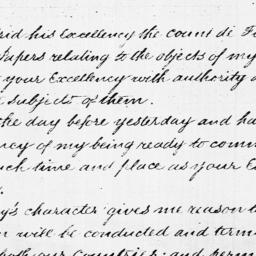 his Excellency the count di
papers relating to the objects of my
your Excellency with authority
subjects of them.
the day before yesterday and
of my being ready to
time and place as your
character gives me reason
will be conducted and
both our Countries; and